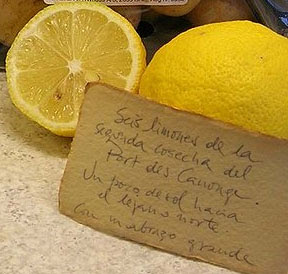 Seis limones de la
segunda cosecha del
Port des Canonge.
Un poco de sol hacia
el lejano norte
Con un abrazo grande